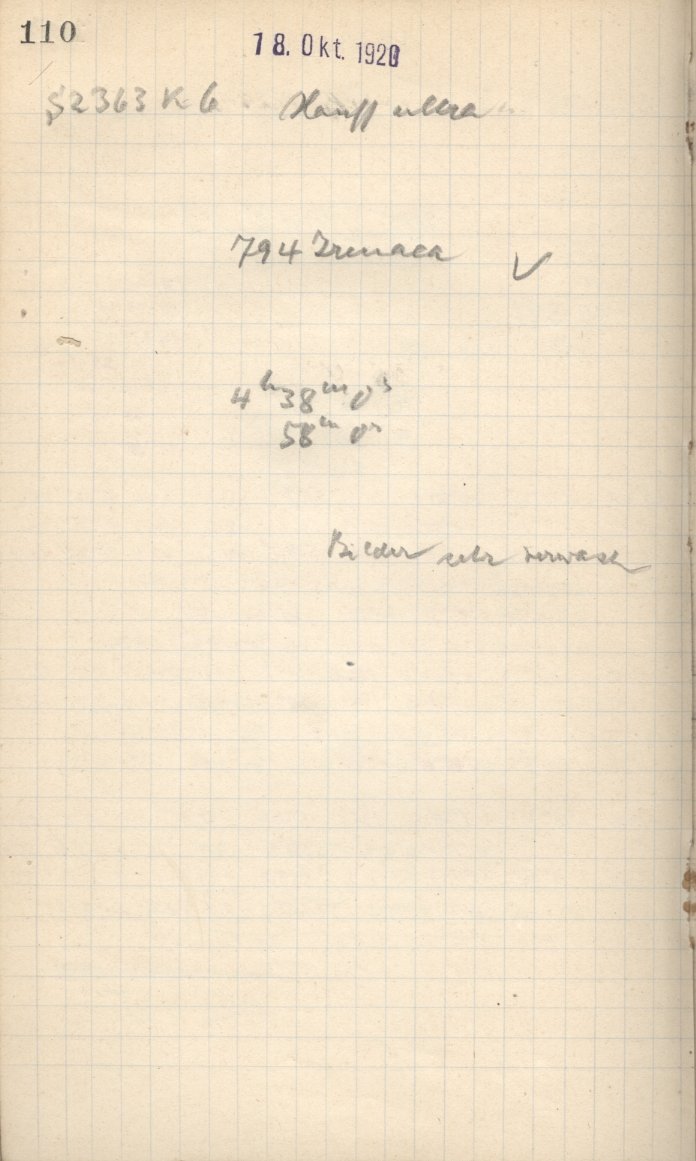 110
18. Okt. 1920
S2363 K 6 Hauff ultra
794 Irenaea ✓
4ʰ38ᵐ0ˢ
58ᵐ0ˢ
Bilder sehr verwasch